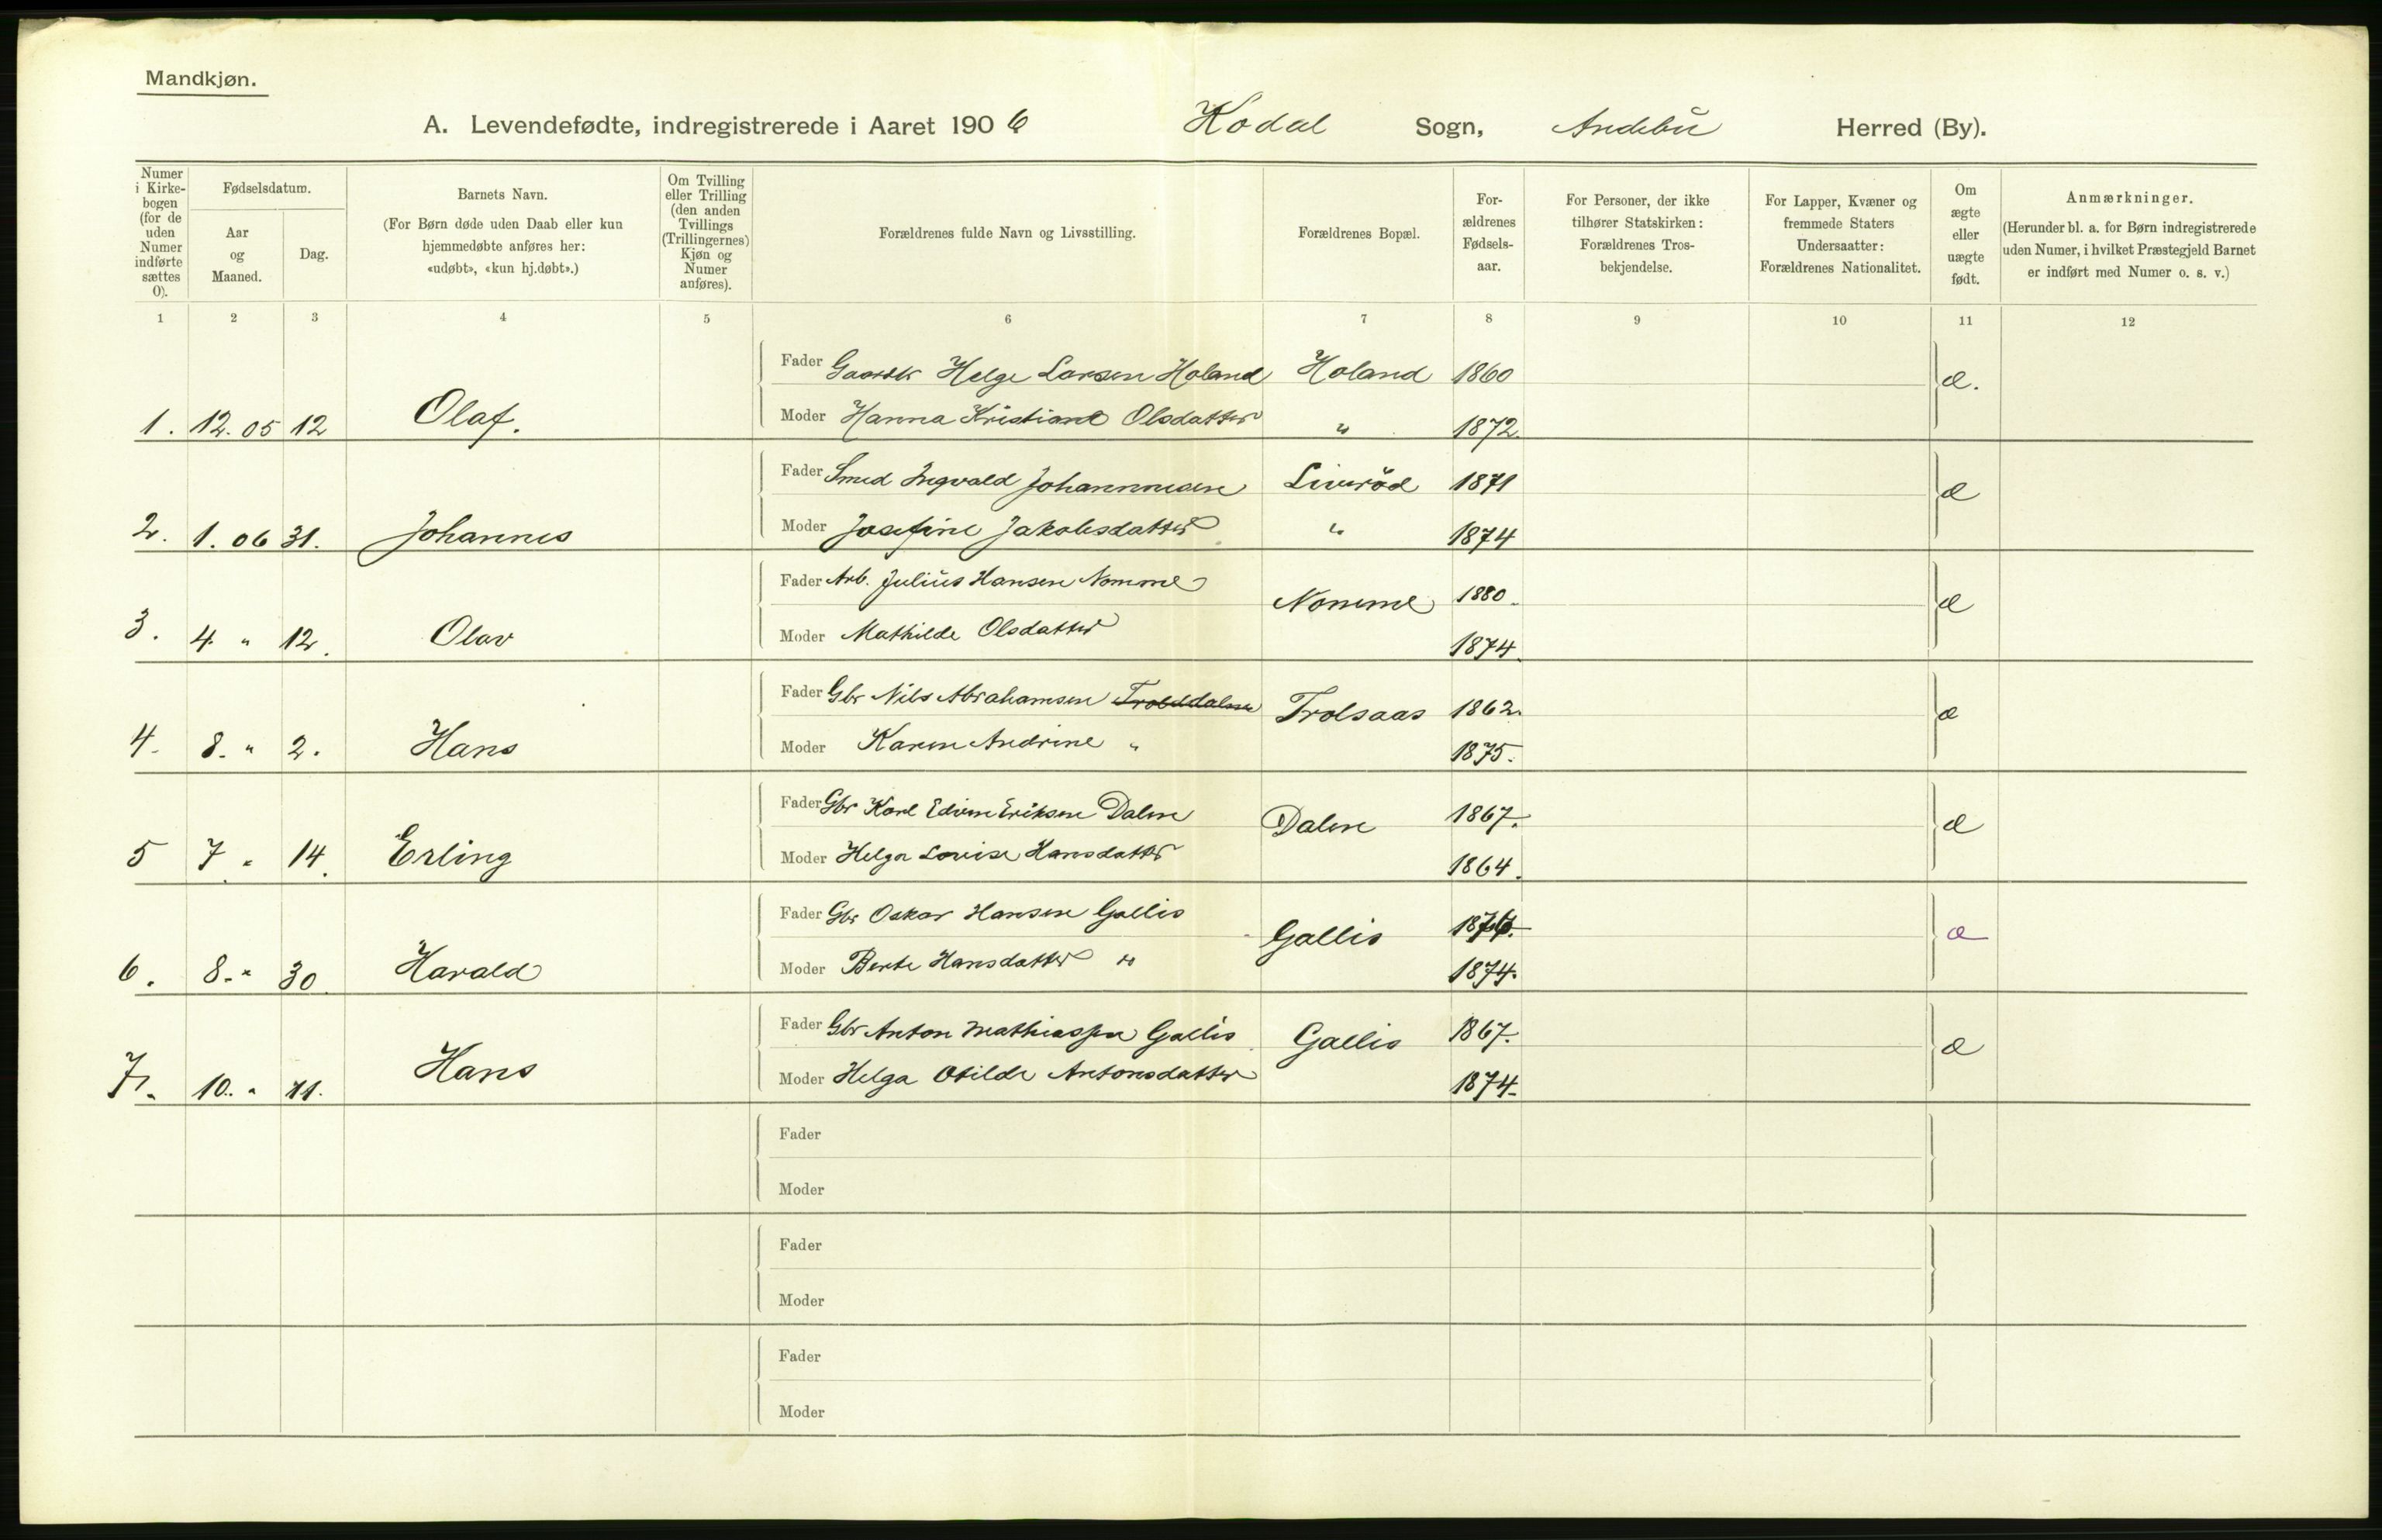 Mandkjøn.
A. Levendefødte, indregistrerede i Aaret 1906 Kodal Sogn, Andebu Herred (By).
Numer i Kirke-bogen (for de uden Numer indførte sættes 0).
Fødselsdatum.
Aar og Maaned.
Dag.
Barnets Navn.
(For Børn døde uden Daab eller kun hjemmedøbte anføres her: «udøbt», «kun hj.døbt».)
Om Tvilling eller Trilling (den anden Tvillings (Trillingernes) Kjøn og Numer anføres).
Forældrenes fulde Navn og Livsstilling.
Forældrenes Bopæl.
For-ældrenes Fødsels-aar.
For Personer, der ikke tilhører Statskirken: Forældrenes Tros-bekjendelse.
For Lapper, Kvæner og fremmede Staters Undersaatter: Forældrenes Nationalitet.
Om ægte eller uægte født.
Anmærkninger.
(Herunder bl. a. for Børn indregistrerede uden Numer, i hvilket Præstegjeld Barnet er indført med Numer o. s. v.)
1 2 3 4 5 6 7 8 9 10 11 12
Fader Gaardbr Helge Larsen Holand Holand 1860 æ.
1. 12.05 12 Olaf. Moder Hanna Kristiane Olsdatter " 1872.
Fader Smed Ingvald Johannesen Liverød 1871 æ
2. 1.06 31. Johannes Moder Josefine Jakobsdatter " 1874
Fader Arb. Julius Hansen Nomme Nomme 1880. æ
3. 4 " 12. Olav Moder Mathilde Olsdatter 1874.
Fader Gbr Nils Abrahamsen Trolddalen Trolsaas 1862. æ
4. 8. " 2. Hans Moder Karen Andrine " 1875.
Fader Gbr Karl Edvin Eriksen Dalen Dalen 1867. æ
5 7 " 14. Erling Moder Helga Lovise Hansdatter 1864.
Fader Gbr Oskar Hansen Gallis Gallis æ
6. 8. " 30. Harald Moder Berte Hansdatter " 1874.
Fader Gbr Anton Mathiassen Gallis Gallis 1867. æ
7. 10. " 11. Hans Moder Helga Otilde Antonsdatter 1874.
Fader
Moder
Fader
Moder
Fader
Moder